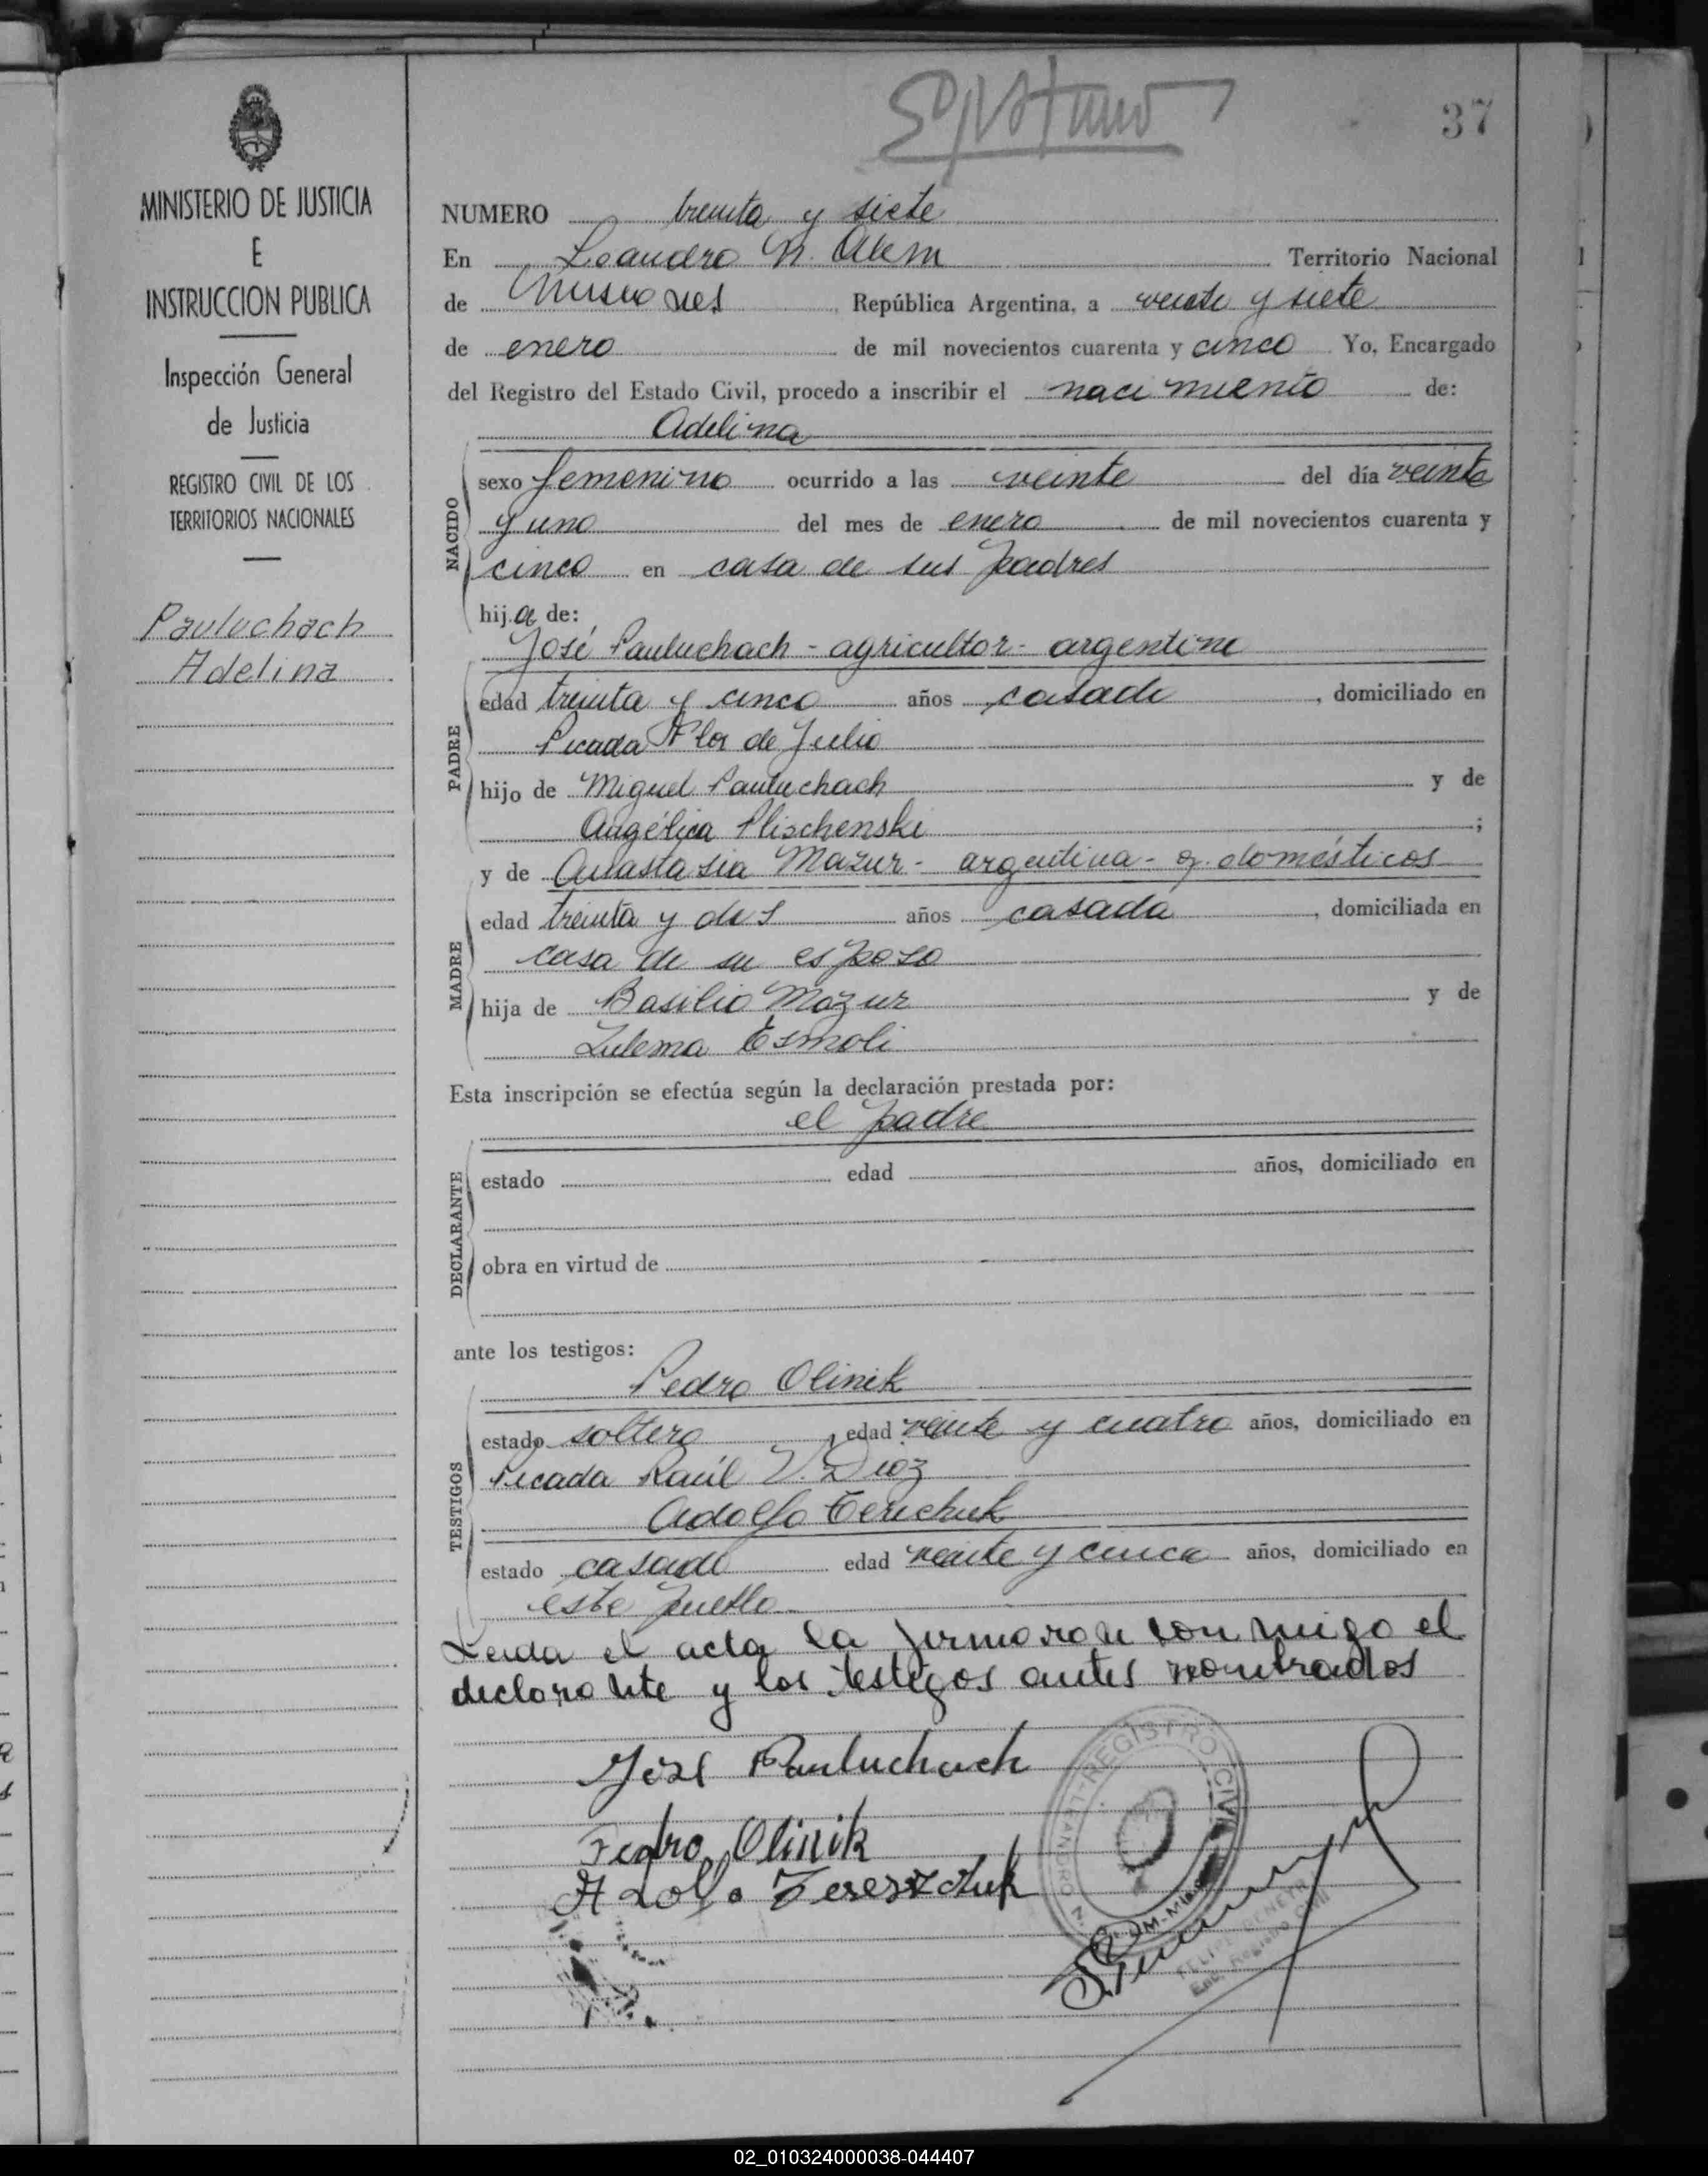 37
MINISTERIO DE JUSTICIA
E
INSTRUCCION PUBLICA
Inspección General
de Justicia
REGISTRO CIVIL DE LOS
TERRITORIOS NACIONALES
Pauluchach
Adelina
NUMERO treinta y siete
En Leandro N. Alem Territorio Nacional
de Misiones República Argentina, a veinte y siete
de enero de mil novecientos cuarenta y cinco Yo, Encargado
del Registro del Estado Civil, procedo a inscribir el nacimiento de:
Adelina
NACIDO
sexo femenino ocurrido a las veinte del día veinte
y uno del mes de enero de mil novecientos cuarenta y
cinco en casa de sus padres
hija de:
José Pauluchach - agricultor - argentino
PADRE
edad treinta y cinco años casado, domiciliado en
Picada Flor de Julio
hijo de Miguel Pauluchach y de
Angélica Plischenski;
y de Anastasia Mazur - argentina - q. domésticos
MADRE
edad treinta y dos años casada, domiciliada en
casa de su esposo
hija de Basilio Mazur y de
Zulema Esmoli
Esta inscripción se efectúa según la declaración prestada por:
el padre
DECLARANTE
estado edad años, domiciliado en
obra en virtud de
ante los testigos:
Pedro Olinik
TESTIGOS
estado soltero, edad veinte y cuatro años, domiciliado en
Picada Raúl V. Dioz
Adolfo Terechuk
estado casado edad veinte y cinco años, domiciliado en
este pueblo
Leida el acta la firmaron conmigo el
declarante y los testigos antes nombrados
José Pauluchach
Pedro Olinik
Adolfo Tereszczuk
REGISTRO CIVIL
LEANDRO N.
Enc. Registro Civil
02_010324000038-044407